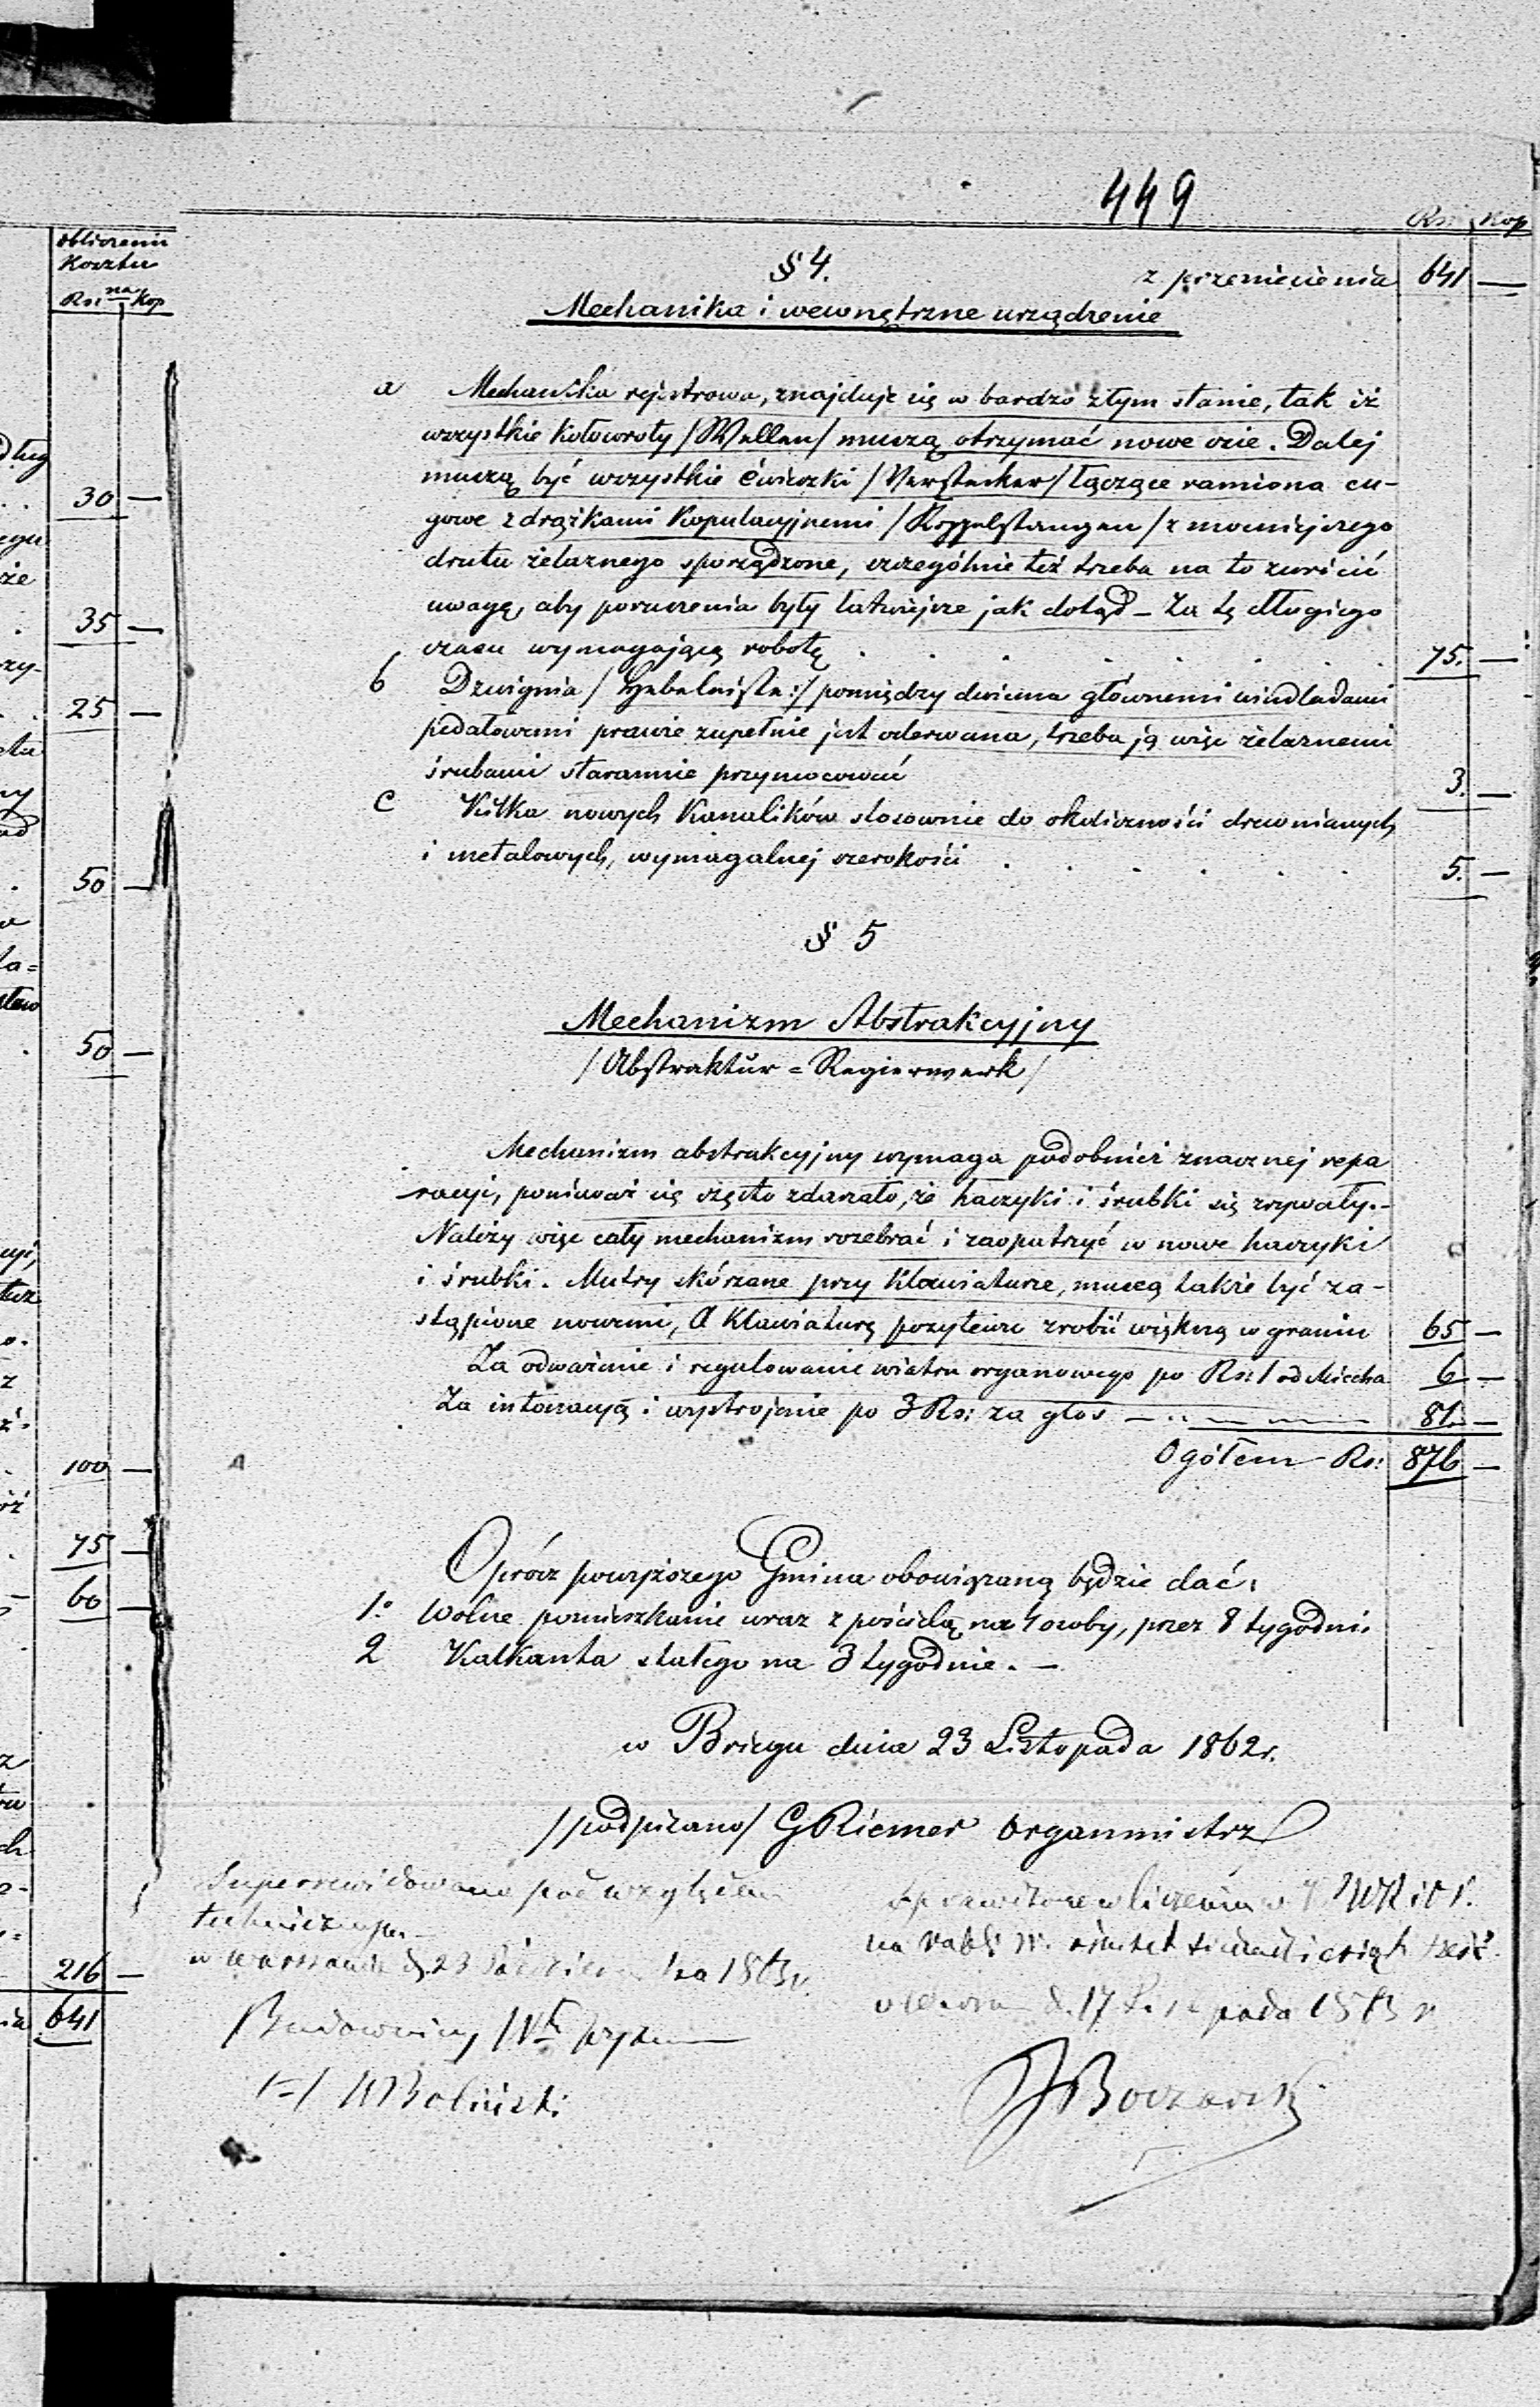 449
obliczenie
Kosztu
na
Rsr Kop
30 —
35 —
25 —
50 —
50 —
100 —
75 —
60 —
216 —
641
Rsr Kop
§ 4. z przeniesienia 641 —
Mechanika i wewnętrzne urządzenie
a Mechanika rejestrowa, znajduje się w bardzo złym stanie, tak iż
wszystkie kołowroty /Wellen/ muszą otrzymać nowe osie. Dalej
muszą być wszystkie ćwieczki /Verstecker/ łączące ramiona cu-
gowe z drążkami kopulacyjnemi /Koppelstangen/ z mocniejszego
drutu żelaznego sporządzone, szczególnie też trzeba na to zwrócić
uwagę, aby poruszenia były łatwiejsze jak dotąd – Za tę długiego
czasu wymagającą robotę . . . . . . . 75. —
b Dzwignia /Hebelleiste:/ pomiędzy dwiema głównemi windladami
pedałowemi prawie zupełnie jest oderwana, trzeba ją więc żelaznemi
śrubami starannie przymocować 3. —
c Kilka nowych Kanalików stosownie do okoliczności drewnianych
i metalowych, wymagalnej szerokości . . . . . . 5. —
§ 5
Mechanizm Abstrakcyjny
/Abstraktur = Regierwerk/
Mechanizm abstrakcyjny wymaga podobnież znacznej repa
racyi, ponieważ się często zdarzało, że haczyki i śrubki się zrywały.-
Należy więc cały mechanizm rozebrać i zaopatrzyć w nowe haczyki
i śrubki. Mutry skórzane przy Klawiaturze, muszą także być za-
stąpione nowemi, a Klawiaturę pozytewu zrobić większą w graniu 65 —
Za odważenie i regulowanie wiatru organowego po Rsr 1 od Miecha 6 —
Za intonacyą i wystrojenie po 3 Rs: za głos — 81 —
Ogółem Rs: 876 —
Oprócz powyższego Gmina obowiązaną będzie dać:
1.o Wolne pomieszkanie wraz z pościelą na 4 osoby, przez 8 tygodni.
2 Kalkanta stałego na 3 tygodnie. —
w Briegu dnia 23 Listopada 1862 r.
/podpisano/ G Riemer Organmistrz
Superrewidowano pod względem
technicznym
w Warszawie d. 23 Października 1863 r.
Budowniczy
/=/ W Boliński
Sprawdzone w liczeniu w
na rabli sr. ośmset siedmdziesiąt sześć.
d. 17 Listopada 1863 r